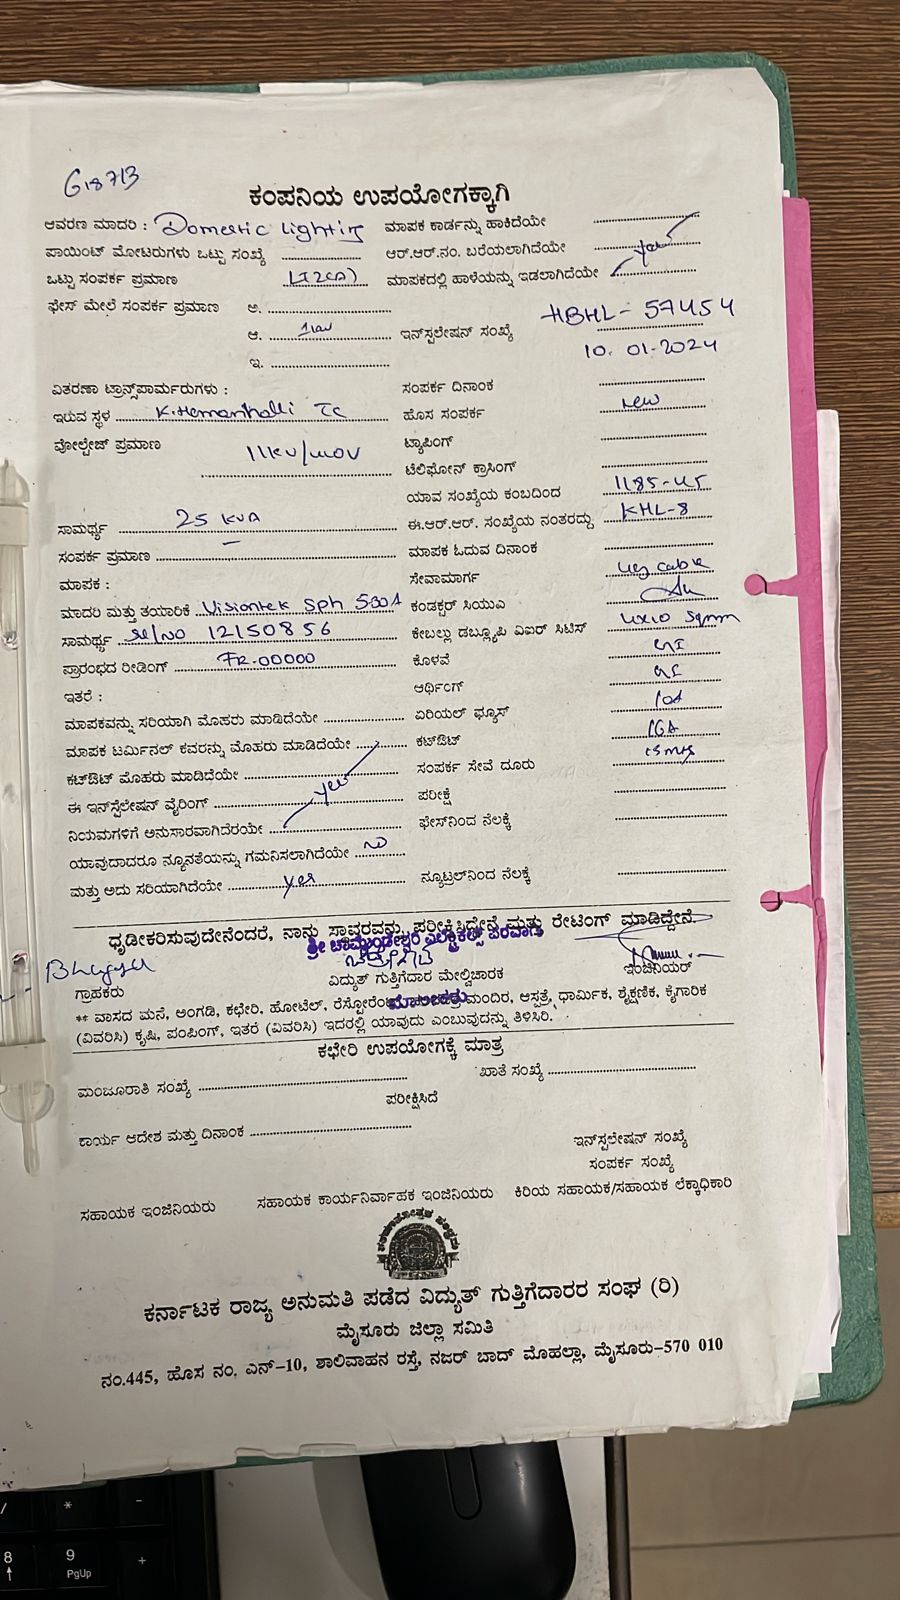 G18713
ಕಂಪನಿಯ ಉಪಯೋಗಕ್ಕಾಗಿ
ಆವರಣ ಮಾದರಿ : Domestic Lighting ಮಾಪಕ ಕಾರ್ಡನ್ನು ಹಾಕಿದೆಯೇ
ಪಾಯಿಂಟ್ ಮೋಟರುಗಳು ಒಟ್ಟು ಸಂಖ್ಯೆ ಆರ್.ಆರ್.ನಂ. ಬರೆಯಲಾಗಿದೆಯೇ yes
ಒಟ್ಟು ಸಂಪರ್ಕ ಪ್ರಮಾಣ LT2(a) ಮಾಪಕದಲ್ಲಿ ಹಾಳೆಯನ್ನು ಇಡಲಾಗಿದೆಯೇ
ಫೇಸ್ ಮೇಲೆ ಸಂಪರ್ಕ ಪ್ರಮಾಣ ಅ.
ಆ. 1kw ಇನ್‌ಸ್ಪಲೇಷನ್ ಸಂಖ್ಯೆ HBHL-57454
ಇ. 10.01.2024
ವಿತರಣಾ ಟ್ರಾನ್ಸ್‌ಪಾರ್ಮರುಗಳು : ಸಂಪರ್ಕ ದಿನಾಂಕ
ಇರುವ ಸ್ಥಳ K.Hemanhalli TC ಹೊಸ ಸಂಪರ್ಕ new
ವೋಲ್ಟೇಜ್ ಪ್ರಮಾಣ 11kv/440V ಟ್ಯಾಪಿಂಗ್
ಟೆಲಿಫೋನ್ ಕ್ರಾಸಿಂಗ್
ಯಾವ ಸಂಖ್ಯೆಯ ಕಂಬದಿಂದ 1185-45
ಸಾಮರ್ಥ್ಯ 25 KVA ಈ.ಆರ್.ಆರ್. ಸಂಖ್ಯೆಯ ನಂತರದ್ದು KHL-8
ಸಂಪರ್ಕ ಪ್ರಮಾಣ ಮಾಪಕ ಓದುವ ದಿನಾಂಕ
ಮಾಪಕ : ಸೇವಾಮಾರ್ಗ ug cable
ಮಾದರಿ ಮತ್ತು ತಯಾರಿಕೆ Visiontek Sph 530A ಕಂಡಕ್ಟರ್ ಸಿಯುವಿ
ಸಾಮರ್ಥ್ಯ Sl/No 12150856 ಕೇಬಲ್ಲು ಡಬ್ಲ್ಯೂಪಿ ವಿಐರ್ ಸಿಟಿಸ್ 4x10 Sqmm
ಪ್ರಾರಂಭದ ರೀಡಿಂಗ್ FR.00000 ಕೊಳವೆ GI
ಇತರೆ : ಆರ್ಥಿಂಗ್ GI
ಮಾಪಕವನ್ನು ಸರಿಯಾಗಿ ಮೊಹರು ಮಾಡಿದೆಯೇ ಏರಿಯಲ್ ಫ್ಯೂಸ್ 10A
ಮಾಪಕ ಟರ್ಮಿನಲ್ ಕವರನ್ನು ಮೊಹರು ಮಾಡಿದೆಯೇ ಕಟ್‌ಔಟ್ 16A
ಕಟ್‌ಔಟ್ ಮೊಹರು ಮಾಡಿದೆಯೇ ಸಂಪರ್ಕ ಸೇವೆ ದೂರು 15 mtrs
ಈ ಇನ್‌ಸ್ಪೆಲೇಷನ್ ವೈರಿಂಗ್ yes ಪರೀಕ್ಷೆ
ನಿಯಮಗಳಿಗೆ ಅನುಸಾರವಾಗಿದೆರಯೇ ಫೇಸ್‌ನಿಂದ ನೆಲಕ್ಕೆ
ಯಾವುದಾದರೂ ನ್ಯೂನತೆಯನ್ನು ಗಮನಿಸಲಾಗಿದೆಯೇ no
ಮತ್ತು ಅದು ಸರಿಯಾಗಿದೆಯೇ yes ನ್ಯೂಟ್ರಲ್‌ನಿಂದ ನೆಲಕ್ಕೆ
ಧೃಡೀಕರಿಸುವುದೇನೆಂದರೆ, ನಾನು ಸ್ಥಾವರವನ್ನು ಪರೀಕ್ಷಿಸಿದ್ದೇನೆ ಮತ್ತು ರೇಟಿಂಗ್ ಮಾಡಿದ್ದೇನೆ.
ಶ್ರೀ ಚಾಮುಂಡೇಶ್ವರಿ ಎಲೆಕ್ಟ್ರಿಕಲ್ಸ್ ಪರವಾಗಿ
ಗ್ರಾಹಕರು ವಿದ್ಯುತ್ ಗುತ್ತಿಗೆದಾರ ಮೇಲ್ವಿಚಾರಕ ಇಂಜಿನಿಯರ್
ಮಾಲೀಕರು
** ವಾಸದ ಮನೆ, ಅಂಗಡಿ, ಕಛೇರಿ, ಹೋಟೆಲ್, ರೆಸ್ಟೋರೆಂಟ್ ಮಂದಿರ, ಆಸ್ಪತ್ರೆ, ಧಾರ್ಮಿಕ, ಶೈಕ್ಷಣಿಕ, ಕೈಗಾರಿಕ
(ವಿವರಿಸಿ) ಕೃಷಿ, ಪಂಪಿಂಗ್, ಇತರೆ (ವಿವರಿಸಿ) ಇದರಲ್ಲಿ ಯಾವುದು ಎಂಬುವುದನ್ನು ತಿಳಿಸಿರಿ.
ಕಛೇರಿ ಉಪಯೋಗಕ್ಕೆ ಮಾತ್ರ
ಮಂಜೂರಾತಿ ಸಂಖ್ಯೆ ಖಾತೆ ಸಂಖ್ಯೆ
ಪರೀಕ್ಷಿಸಿದೆ
ಕಾರ್ಯ ಆದೇಶ ಮತ್ತು ದಿನಾಂಕ
ಇನ್‌ಸ್ಪಲೇಷನ್ ಸಂಖ್ಯೆ
ಸಂಪರ್ಕ ಸಂಖ್ಯೆ
ಸಹಾಯಕ ಇಂಜಿನಿಯರು ಸಹಾಯಕ ಕಾರ್ಯನಿರ್ವಾಹಕ ಇಂಜಿನಿಯರು ಕಿರಿಯ ಸಹಾಯಕ/ಸಹಾಯಕ ಲೆಕ್ಕಾಧಿಕಾರಿ
ಕರ್ನಾಟಕ ರಾಜ್ಯ ಅನುಮತಿ ಪಡೆದ ವಿದ್ಯುತ್ ಗುತ್ತಿಗೆದಾರರ ಸಂಘ (ರಿ)
ಮೈಸೂರು ಜಿಲ್ಲಾ ಸಮಿತಿ
ನಂ.445, ಹೊಸ ನಂ. ಎನ್–10, ಶಾಲಿವಾಹನ ರಸ್ತೆ, ನಜರ್ ಬಾದ್ ಮೊಹಲ್ಲಾ, ಮೈಸೂರು–570 010
/ * -
8 9 PgUp +